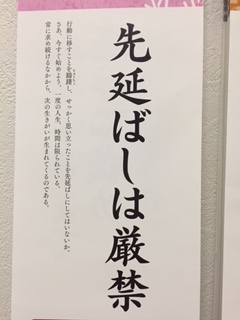 先延ばしは厳禁
行動に移すことを躊躇し、せっかく思い立ったことを先延ばしにしてはいないか。
さあ、今すぐ始めよう。一度の人生、時間は限られている。
常に求め続けるなかから、次の生きがいが生まれてくるのである。